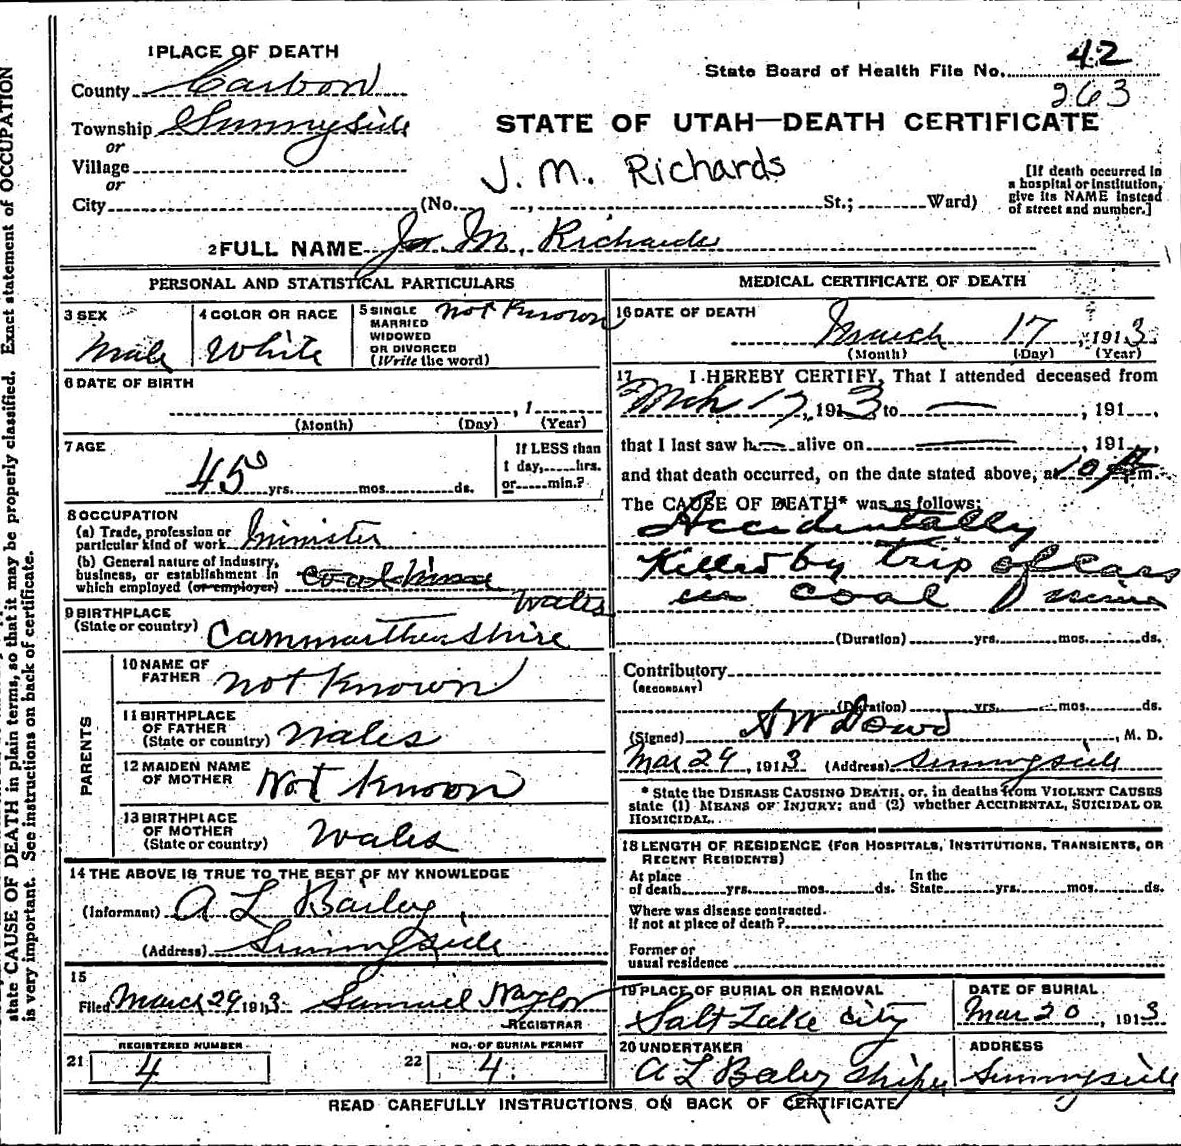 state CAUSE OF DEATH in plain terms, so that it may be properly classified. Exact statement of OCCUPATION
is very important. See instructions on back of certificate.
1 PLACE OF DEATH
County Carbon
Township Sunnyside
or
Village
or
City (No. , St.; Ward)
State Board of Health File No. 42
263
STATE OF UTAH—DEATH CERTIFICATE
J. M. Richards
[If death occurred in
a hospital or institution,
give its NAME instead
of street and number.]
2 FULL NAME M. Richards
PERSONAL AND STATISTICAL PARTICULARS
3 SEX
Male
4 COLOR OR RACE
White
5 SINGLE
MARRIED
WIDOWED
OR DIVORCED
(Write the word)
Not Known
6 DATE OF BIRTH
, 1
(Month) (Day) (Year)
7 AGE
45 yrs. mos. ds.
If LESS than
1 day, hrs.
or min.?
8 OCCUPATION
(a) Trade, profession or
particular kind of work Minister
(b) General nature of industry,
business, or establishment in
which employed (or employer)
9 BIRTHPLACE
(State or country) Cammarthenshire Wales
PARENTS
10 NAME OF
FATHER Not Known
11 BIRTHPLACE
OF FATHER
(State or country) Wales
12 MAIDEN NAME
OF MOTHER Not Known
13 BIRTHPLACE
OF MOTHER
(State or country) Wales
14 THE ABOVE IS TRUE TO THE BEST OF MY KNOWLEDGE
(Informant) A L Bailey
(Address) Sunnyside
15
Filed March 29 1913 Samuel Naylor
REGISTRAR
21 REGISTERED NUMBER
4
22 NO. OF BURIAL PERMIT
4
MEDICAL CERTIFICATE OF DEATH
16 DATE OF DEATH
March 17, 1913
(Month) (Day) (Year)
17 I HEREBY CERTIFY, That I attended deceased from
Mch 17, 1913 to — , 191 ,
that I last saw h — alive on — , 191 ,
and that death occurred, on the date stated above, at 10 m.
The CAUSE OF DEATH* was as follows:
Accidentally
Killed by trip of cars
in coal mine
(Duration) yrs. mos. ds.
Contributory
(SECONDARY)
(Duration) yrs. mos. ds.
(Signed) A W Dowd , M. D.
Mar 29, 1913 (Address) Sunnyside
* State the DISEASE CAUSING DEATH, or, in deaths from VIOLENT CAUSES
state (1) MEANS OF INJURY; and (2) whether ACCIDENTAL, SUICIDAL OR
HOMICIDAL.
18 LENGTH OF RESIDENCE (FOR HOSPITALS, INSTITUTIONS, TRANSIENTS, OR
RECENT RESIDENTS)
At place
of death yrs. mos. ds.
In the
State yrs. mos. ds.
Where was disease contracted.
If not at place of death?
Former or
usual residence
19 PLACE OF BURIAL OR REMOVAL
Salt Lake City
DATE OF BURIAL
Mar 20, 1913
20 UNDERTAKER
A L Bailey
ADDRESS
Sunnyside
READ CAREFULLY INSTRUCTIONS ON BACK OF CERTIFICATE